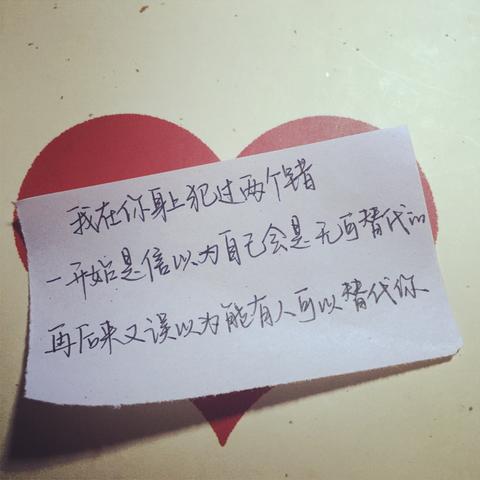 我在你身上犯过两个错
一开始是信以为自己会是无可替代的
再后来又误以为能有人可以替代你